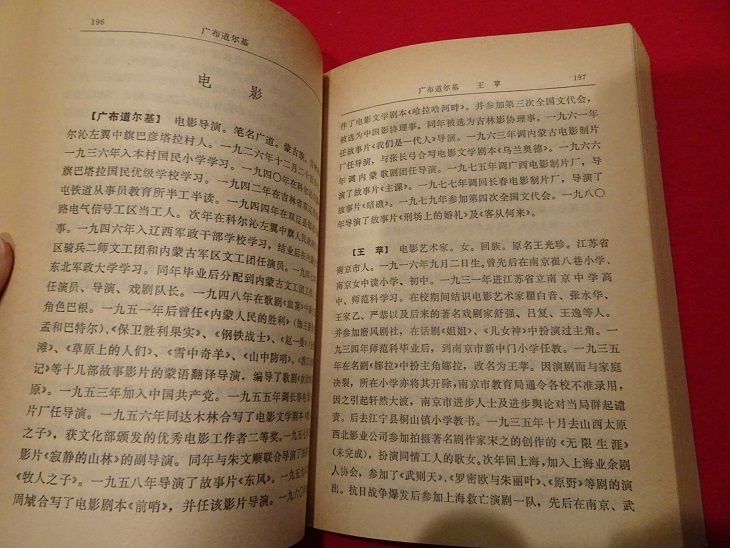 196
广布道尔基
电影
【广布道尔基】 电影导演。笔名广道。蒙古族。
尔沁左翼中旗巴彦塔拉村人。一九二六年十二月二十
一九三六年入本村国民小学学习。一九四〇年在科尔沁
旗巴塔拉国民优级学校学习。一九四二年在吉林省双辽
屯铁道从事员教育所半工半读。一九四四年在双辽县
路电气信号工区当工人。次年在科尔沁左翼中旗人民政
一九四六年入辽西军政干部学校学习，结业后在内蒙
区骑兵二师文工团和内蒙古军区文工团任演员。
东北军政大学学习。同年毕业后分配到内蒙古文工团
任演员、导演、戏剧队长。一九四八年在歌剧《血案》中
角色巴根。一九五一年后曾任《内蒙人民的胜利》
孟和巴特尔）、《保卫胜利果实》、《钢铁战士》、《赵一曼》
滩》、《草原上的人们》、《雪中奇羊》、《山中防哨》、
记》等十几部故事影片的蒙语翻译导演，编导了歌剧
原》。一九五三年加入中国共产党。一九五五年调长春电
片厂任导演。一九五六年同达木林合写了电影文学剧本
之子》，获文化部颁发的优秀电影工作者二等奖。一九五七
影片《寂静的山林》的副导演。同年与朱文顺联合导演了
《牧人之子》。一九五八年导演了故事片《东风》。一九六〇年
周墄合写了电影剧本《前哨》，并任该影片导演。一九六
广布道尔基 王苹
197
作了电影文学剧本《哈拉哈河畔》。并参加第三次全国文代会，
被选为中国影协理事。同年被选为吉林影协理事。一九六一年
任故事片《我们是一代人》导演。一九六三年调内蒙古电影制片
厂任导演。与张长弓合写电影文学剧本《乌兰奥德》。一九六六
年调内蒙歌剧团任导演。一九七五年调广西电影制片厂，导
演了故事片《主课》。一九七七年调回长春电影制片厂，导演了
故事片《结礁》。一九七九年参加第四次全国文代会。一九八〇
年导演了故事片《刑场上的婚礼》及《客从何来》。
【王苹】 电影艺术家。女。回族。原名王光珍。江苏省
南京市人。一九一六年九月二日生。曾先后在南京崔八巷小学、
南京女中读小学、初中。一九三一年进江苏省立南京中学高
中、师范科学习。在校期间结识电影艺术家瞿白音、张水华、
王家乙、严恭以及后来的著名戏剧家舒强、吕复、王逸等人。
并参加磨风剧社，在话剧《姐姐》、《儿女神》中扮演过主角。一
九三四年师范科毕业后，到南京市新中门小学任教。一九三五
年在剧《娜拉》中扮主角娜拉，改名为王苹。因演剧而与家庭
决裂，所在小学亦将其开除，南京市教育局通令各校不准录用，
因之引起轩然大波，南京市进步人士及进步舆论对当局群起谴
责。后去江宁县桐山镇小学教书。一九三五年十月去山西太原
西北影业公司参加拍摄著名剧作家宋之的创作的《无限生涯》
（未完成），扮演同情工人的歌女。次年回上海，加入上海业余剧
人协会，参加了《武则天》、《罗密欧与朱丽叶》、《原野》等剧的演
出。抗日战争爆发后参加上海救亡演剧一队，先后在南京、武